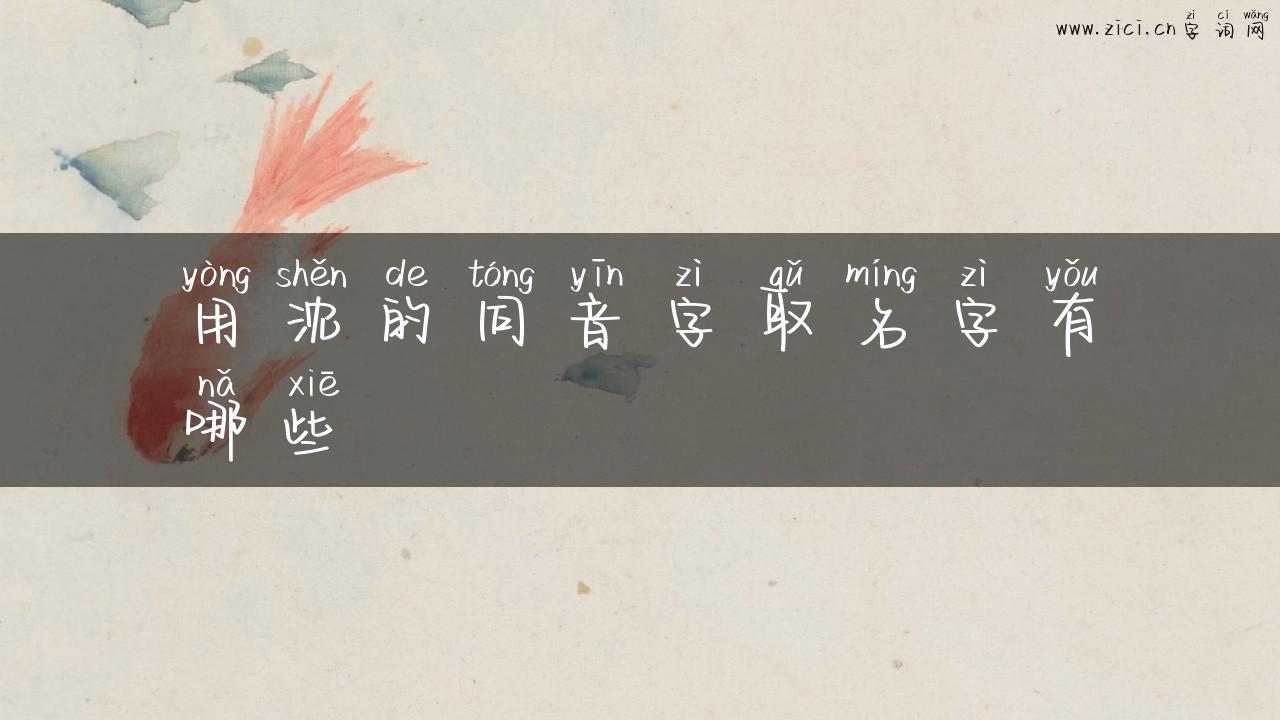 zì cí wǎng
www.zici.cn 字 词 网
yòng shěn de tóng yīn zì qǔ míng zì yǒu
用 沈 的 同 音 字 取 名 字 有
nǎ xiē
哪 些